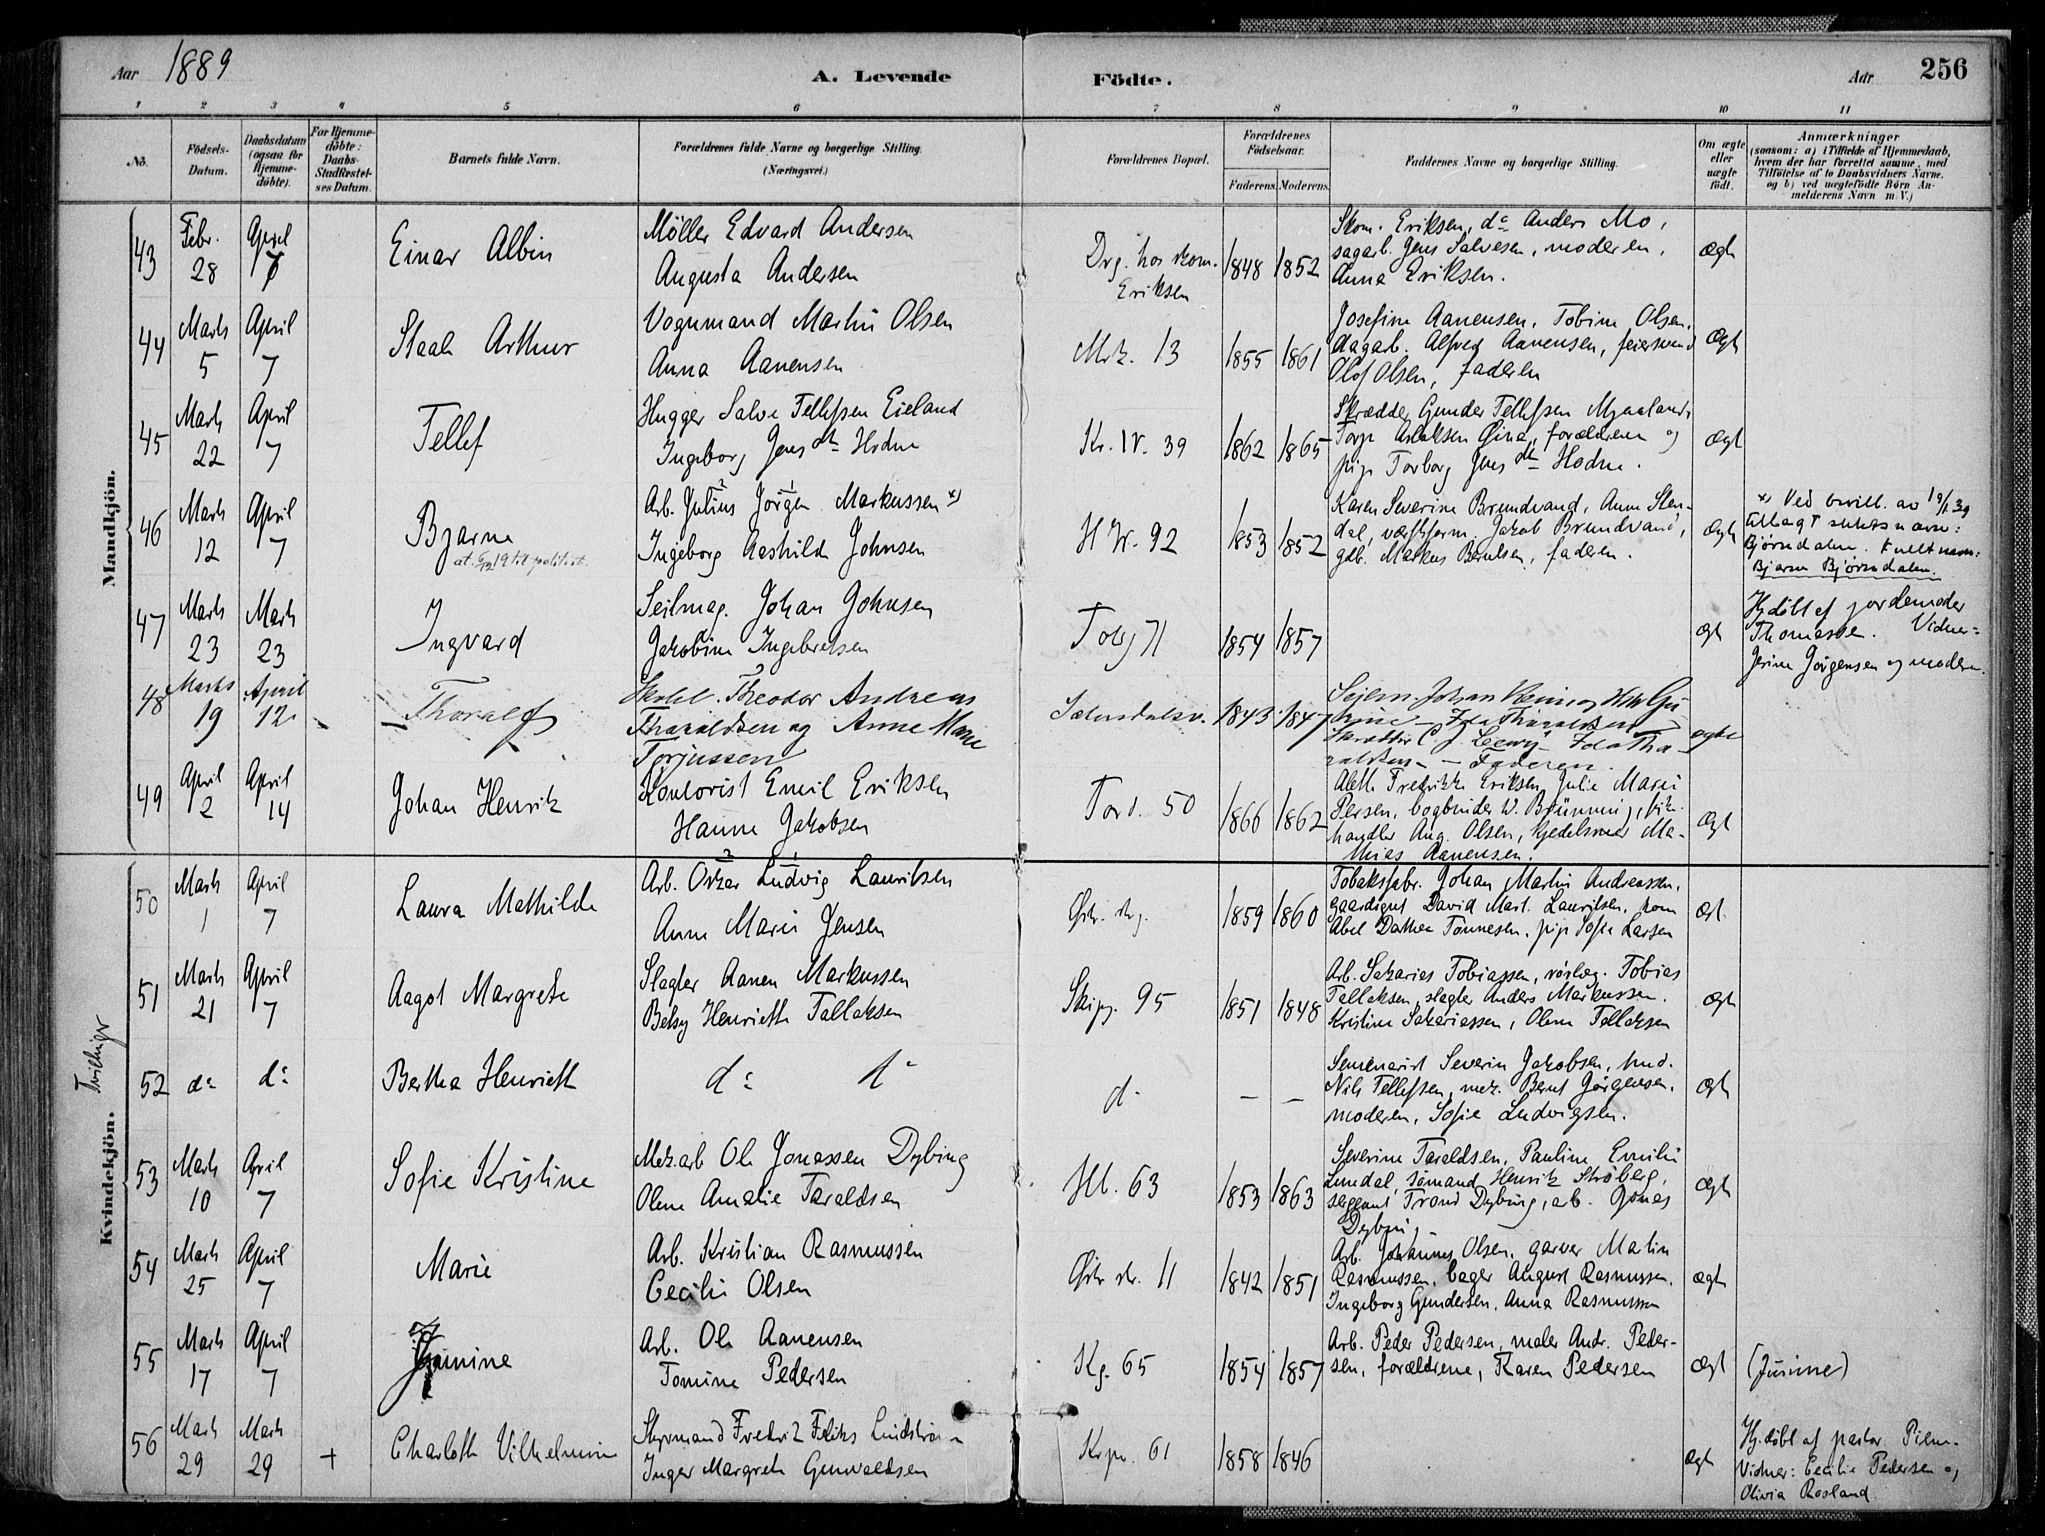 Aar 1889
A. Levende Födte.
Aar 256
1 2 3 4 5 6 7 8 9 10 11
No.
Födsels-Datum.
Daabsdatum (ogsaa for Hjemme-döbte).
For Hjemme-döbte: Daabs-Stadfestel-ses Datum.
Barnets fulde Navn.
Forældrenes fulde Navne og borgerlige Stilling. (Næringsvei.)
Forældrenes Bopæl.
Forældrenes Födselsaar.
Faderens. Moderens.
Faddernes Navne og borgerlige Stilling.
Om ægte eller uægte födt.
Anmærkninger
(saasom: a) i Tilfælde af Hjemmedaab, hvem der har forrettet samme, med Tilföielse af to Daabsvidners Navne. og b) ved uægtefödte Börn An-melderens Navn m. V.)
Mandkjön.
43 Febr. 28 April 7
Einar Albin
Möller Edvard Andersen
Augusta Andersen
Drg. hos skom. Eriksen
1848 1852
Skom. Eriksen, do Anders Mo,
sagarb. Jens Salvesen, moderen,
Anna Eriksen.
Ægt
44 Marts 5 April 7
Staale Arthur
Vognmand Martin Olsen
Anna Aanensen
Mrk. 13
1855 1861
Josefine Aanensen, Tobine Olsen,
dagarb. Alfred Aanensen, feiersvend
Olof Olsen, faderen
Ægt
45 Marts 22 April 7
Tellef
Hugger Salve Tellefsen Eieland
Ingeborg Jensdtr Hodne
Kr. IV. 39
1862 1865
Skrædder Gunder Tellefsen Mjaaland,
Torje Aslaksen Öina, forældrene og
pige Torborg Jensdtr Hodne.
Ægt
46 Marts 12 April 7
Bjarne
at. 6/12 19 til politiet.
Arb. Julius Jörgen Markussen x)
Ingeborg Aashilde Johnsen
H W. 92
1853 1852
Karen Severine Brundvand, Anne Sten-
dal, værftsform. Jakob Brundvand,
gdb. Markus Berntsen, faderen.
Ægt
x) Ved bevill. av 19/1 39
tillagt slektsnavn:
Bjørndalen. Fullt navn:
Bjarne Bjørndalen.
47 Marts 23 Marts 23
Ingvard
Seilmag. Johan Johnsen
Jakobine Ingebretsen
Tobg 71
1854 1857
ægt
Hj.döbt af jordemoder
Thomassen. Vidner:
Jerine Jörgensen og moderen
48 Marts 19 April 12
Thoralf
Theodor Andreas
Tharaldsen og Anne Marie
Torjussen
Sætersdalsv.
1843 1847
Faderen.
ægte
49 April 2 April 14
Johan Henrik
Kontorist Emil Eriksen
Hanne Jakobsen
Tord. 50
1866 1862
Aleth Fredrikke Eriksen, Julie Marie
Persen, bogbinder W. Brünning,
handler Aug. Olsen, Gjedelsmer Ma-
thias Aanensen.
Ægt
Kvindekjön.
50 Marts 1 April 7
Laura Mathilde
Arb. Oskar Ludvig Lauritsen
Anne Marie Jensen
Östr. strg.
1859 1860
Tobaksfabr. Johan Martin Andreassen,
gaardsgut David Mart. Lauritsen, kone
Abel Dathea Tönnesen, pige Sofie Larsen
Ægt
Tvillinger
51 Marts 21 April 7
Aagot Margrete
Slagter Aanen Markussen
Betsy Henriette Tallaksen
Skipg. 95
1851 1848
Arb. Sakarias Tobiassen, rörlæg. Tobias
Tallaksen, slagter Anders Markussen.
Kristine Sakariassen, Olene Tallaksen
Ægt
52 do do
Bertha Henriette
do do
d.
– –
Semenarist Severin Jakobsen, hmd.
Nils Tellefsen, mek. Bernt Jörgensen,
moderen, Sofie Ludvigsen.
Ægt
53 Marts 10 April 7
Sofie Kristine
Mek.arb Ole Jonassen Dybing
Olene Amalie Taraldsen
Hl. 63
1853 1863
Severine Taraldsen, Pauline Emilie
Lundal, sömand Henrik Ströberg,
sergeant Trond Dybing, arb. Jonas
Dybing.
Ægt
54 Marts 25 April 7
Marie
Arb. Kristian Rasmussen
Cecilie Olsen
Östr str. 11
1842 1851
Arb. Johannes Olsen, garver Martin
Rasmussen, bager August Rasmussen,
Ingeborg Gundersen, Anna Rasmussen
ægt
55 Marts 17 April 7
Junine
Arb. Ole Aanensen
Tomine Pedersen
Kg. 65
1854 1857
Arb. Peder Pedersen, maler Andr. Peder-
sen, forældrene, Karen Pedersen
Ægt
(Junine)
56 Marts 29 Marts 29 +
Charlotte Vilhelmine
Styrmand Fredrik Feliks Lindström
Inger Margrete Gunvaldsen
Krpr. 61
1858 1846
Ægt
Hj.döbt af pastor Piene.
Vidner: Cecilie Pedersen og
Olivia Rosland.